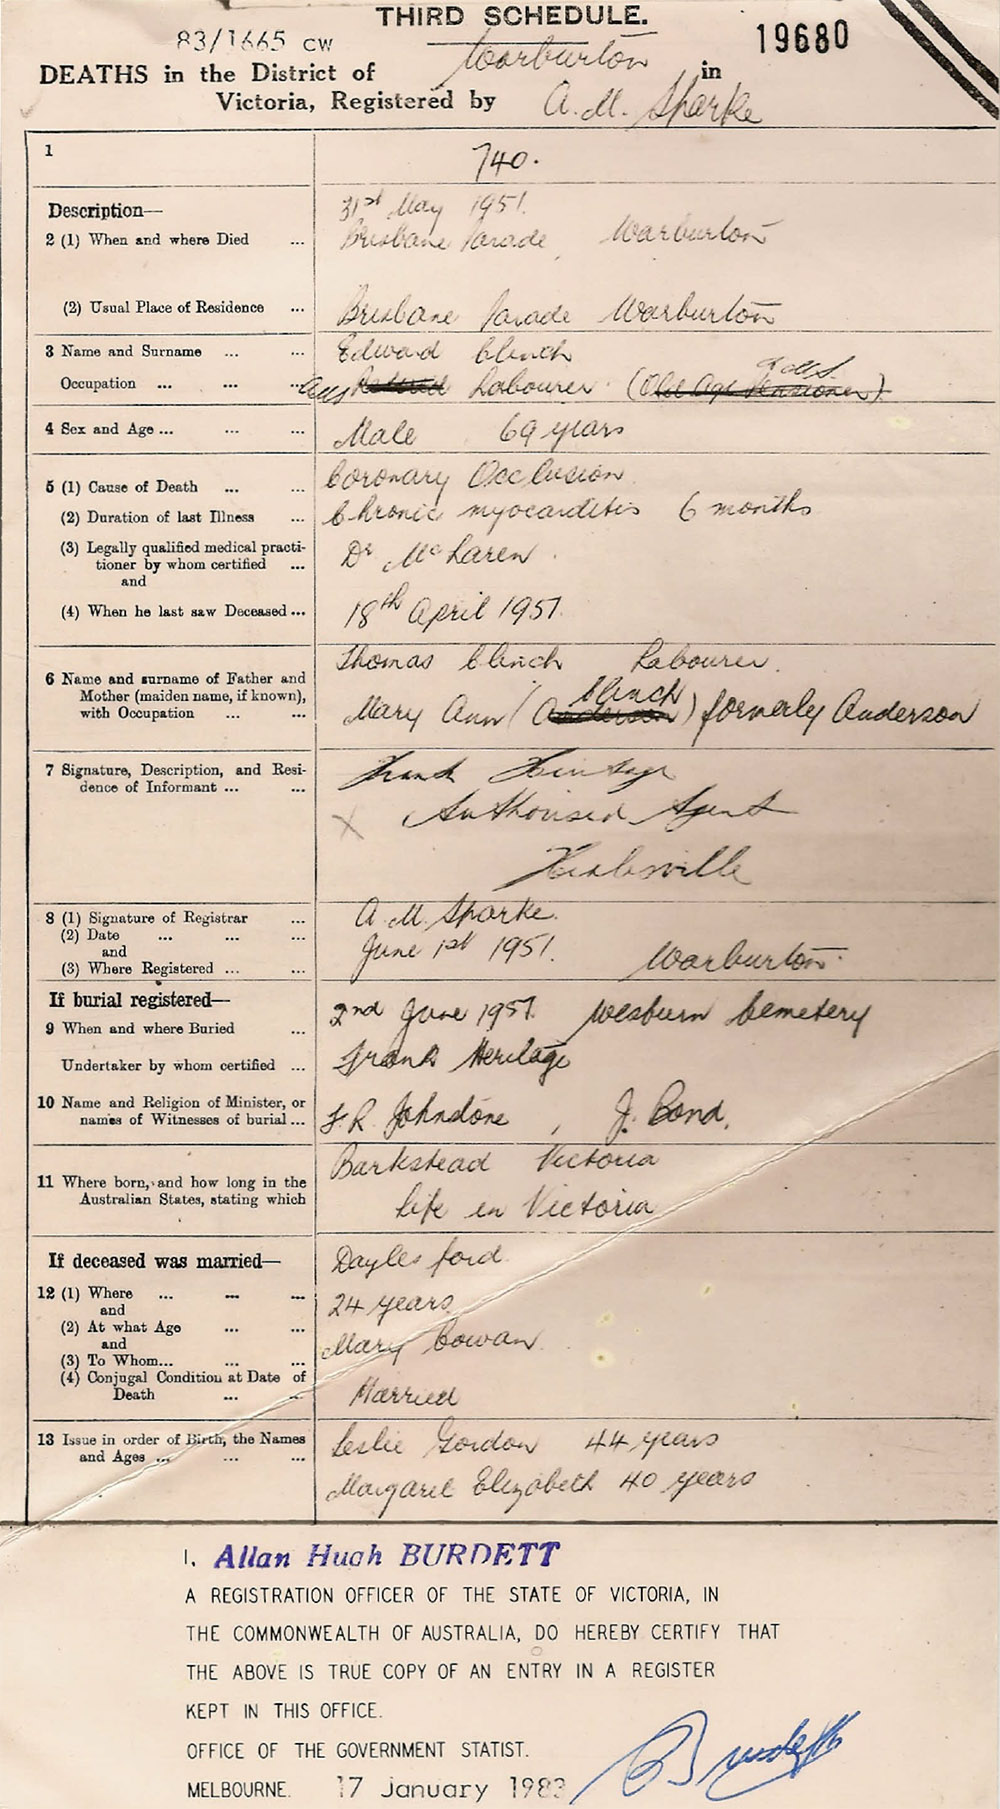 THIRD SCHEDULE.
83/1665 CW
19680
DEATHS in the District of Warburton in
Victoria, Registered by A. M. Sparke
1 740.
Description—
31st May 1951.
2 (1) When and where Died ... Brisbane Parade, Warburton
(2) Usual Place of Residence ... Brisbane Parade Warburton
3 Name and Surname ... ... Edward Clinch
Occupation ... ... ... Retired Labourer (Old Age Pensioner)
A.M.S.
4 Sex and Age ... ... ... Male 69 years
5 (1) Cause of Death ... ... Coronary Occlusion
(2) Duration of last Illness ... Chronic myocarditis 6 months
(3) Legally qualified medical practi- Dr McLaren.
tioner by whom certified ...
and
(4) When he last saw Deceased ... 18th April 1951.
Thomas Clinch Labourer.
6 Name and surname of Father and
Mother (maiden name, if known), Clinch
with Occupation ... ... Mary Ann (Anderson) formerly Anderson
7 Signature, Description, and Resi- Frank Heritage
dence of Informant ... ...
X Authorised Agent
Healesville
8 (1) Signature of Registrar ... A. M. Sparke.
(2) Date ... ... ... June 1st 1951. Warburton.
and
(3) Where Registered ... ...
If burial registered—
9 When and where Buried ... 2nd June 1951. Wesburn Cemetery
Undertaker by whom certified ... Frank Heritage
10 Name and Religion of Minister, or
names of Witnesses of burial ... F. R. Johndone, J. Bond.
Barkstead Victoria
11 Where born, and how long in the
Australian States, stating which life in Victoria
If deceased was married— Daylesford.
12 (1) Where ... ... ... 24 years
and
(2) At what Age ... ...
and Mary Cowan
(3) To Whom... ... ...
(4) Conjugal Condition at Date of
Death ... ... Married
13 Issue in order of Birth, the Names Leslie Gordon 44 years
and Ages ... ... ...
Margaret Elizabeth 40 years
I, Allan Hugh BURDETT
A REGISTRATION OFFICER OF THE STATE OF VICTORIA, IN
THE COMMONWEALTH OF AUSTRALIA, DO HEREBY CERTIFY THAT
THE ABOVE IS TRUE COPY OF AN ENTRY IN A REGISTER
KEPT IN THIS OFFICE.
OFFICE OF THE GOVERNMENT STATIST.
MELBOURNE. 17 January 1983
Burdett